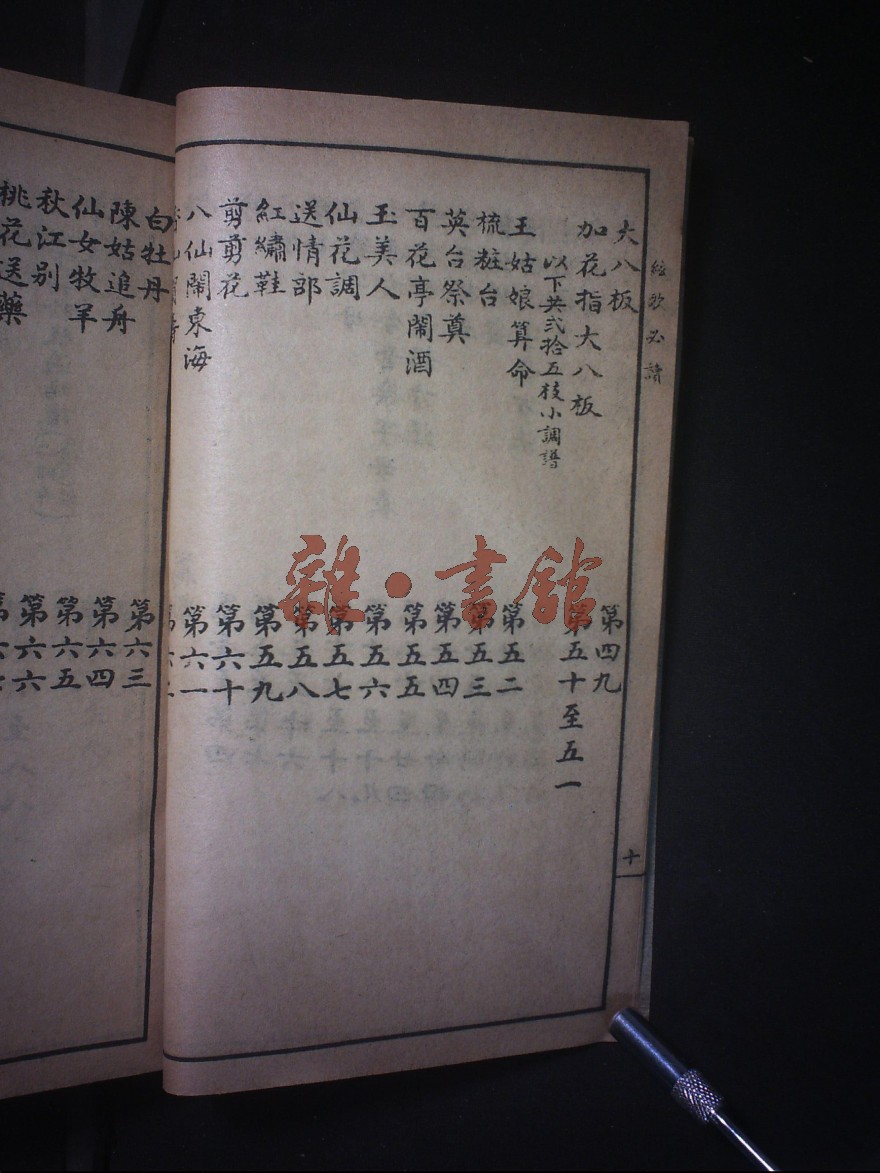 絃歌必讀
大八板 第四九
加花指大八板 第五十至五一
以下共弍拾五枝小調譜
王姑娘算命 第五二
梳粧台 第五三
英台祭奠 第五四
百花亭鬧酒 第五五
玉美人 第五六
仙花調 第五七
送情部 第五八
紅繡鞋 第五九
剪剪花 第六十
八仙鬧東海 第六一
十
白牡丹 第六三
陳姑追舟 第六四
仙女牧羊 第六五
秋江別 第六六
桃花送藥
雜·書館